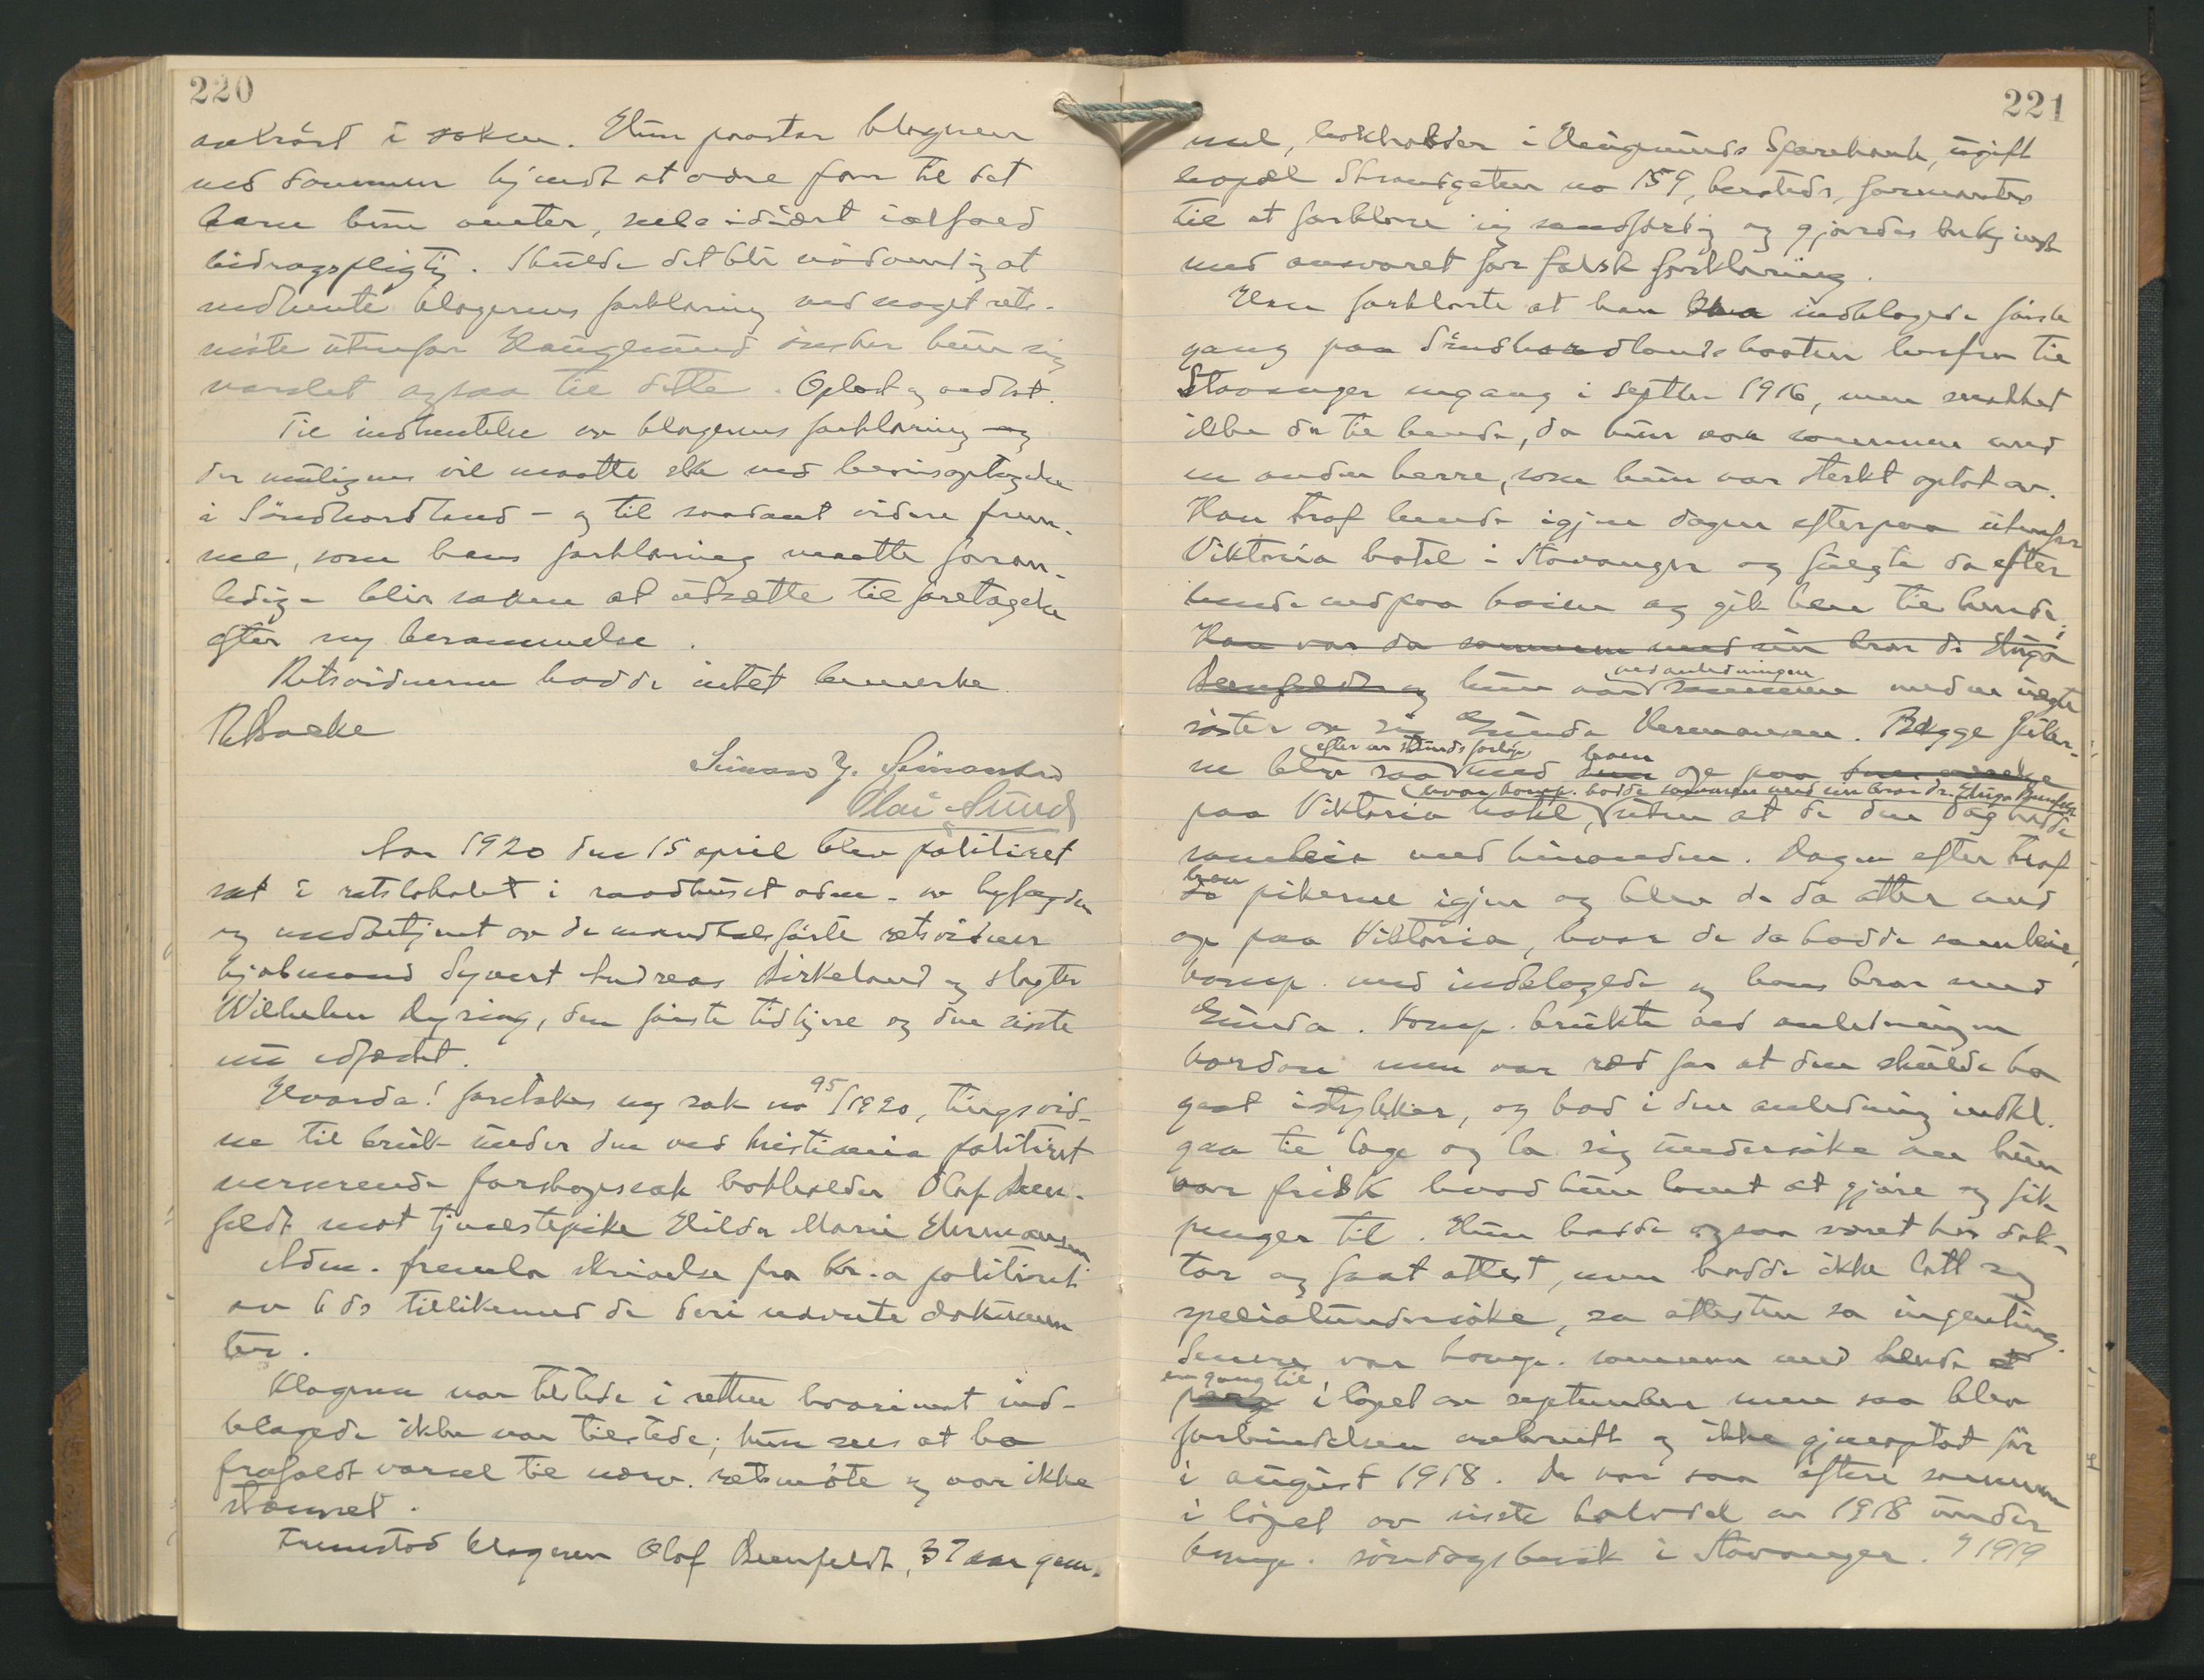 220
anført i saken. Hun paastar klageren
ved dommen kjendt at være far til det
barn hun venter, subsidiært ialfald
bidragspligtig. Skulde det bli nødvendig at
indhente klagerens forklaring ved noget rets-
møte utenfor Haugesund ønsker hun sig
varslet ogsaa til dette. Oplest og vedtat.
Til indhentelse av klagerens forklaring og
der muligens vil maatte ske ved bevisoptagelse
i Søndhordland - og til saadant videre frem-
me, som hans forklaring maatte foran-
ledige blir saken at utsætte til foretagelse
efter ny berammelse.
Retsvidnerne hadde intet bemerke.
Simon J. Simonstad
Olai Sund
Aar 1920 den 15 april blev politiret
sat i retslokalet i raadhuset adm. av byfogden
og medbetjent av de mandtalsførte retsvidner
kjøbmand Syvert Andreas Birkeland og slagter
Wilhelm Dyring, den første tidligere og den siste
nu edfæstet.
Hvorda! foretokes ny sak no 95/1920, tingsvid-
ne til bruk under den ved Kristiania politiret
verserende farskapssak bokholder Olaf Beer-
feldt mot tjenestepike Hilda Marie Hermansen
Adm. fremla skrivelse fra Kr.a politiret
av 6 ds tillikemed de deri nævnte dokumen
ter.
Klageren var tilstede i retten hvorimot ind-
klagede ikke var tilstede; hun sees at ha
frafaldt varsel til nærv. retsmøte og var ikke
stævnet.
Fremstod klageren Olaf Beerfeldt, 37 aar gam-
221
mel, bokholder i Haugesunds Sparebank, ugift
bopæl Strandgaten no 159, hersteds, formantes
til at forklare sig sandfærdig og gjordes bekjendt
med ansvaret for falsk forklaring.
Han forklarte at han traf indklagede første
gang paa Søndhordlandsbaaten herfra til
Stavanger engang i septbr 1916, men snakket
ikke da til hende, da hun var sammen med
en anden herre, som hun var sterkt optat av.
Han traf hende igjen dagen efterpaa utenfor
Viktoria hotel i Stavanger og fulgte da efter
hende nedpaa kaien og gik hen til hende;
Han var da sammen med sin bror dr. Struga
Beerfeldt og hun var ved anledningen sammen med en yngre
søster av sig Gunda Hermansen. Begge piker-
ne blev saa efter en stunds forløp med ham op paa
paa Viktoria hotel, hvor komp. hadde sammen med sin bror dr. Struga Beerfeldt uten at de den dag hadde
samleie med hinanden. Dagen efter traf
han pikerne igjen og blev de da atter med
op paa Viktoria, hvor de da hadde samleie,
komp. med indklagede og hans bror med
Gunda. Komp. brukte ved anledningen
kondom men var ræd for at den skulde ha
gaat istykker, og bad i den anledning indkl.
gaa til læge og la sig undersøke om hun
var frisk hvad hun lovet at gjøre og fik
penger til. Hun hadde ogsaa været hos dok-
tor og faat attest, men hadde ikke latt sig
spesialundersøke, sa attesten sa ingenting.
Senere var komp. sammen med hende
en gang til i løpet av september men saa blev
forbindelsen avbrutt og ikke gjenoptat før
i august 1918. De var saa oftere sammen
i løpet av siste halvdel av 1918 under
komp. søndagsbesøk i Stavanger. I 1919